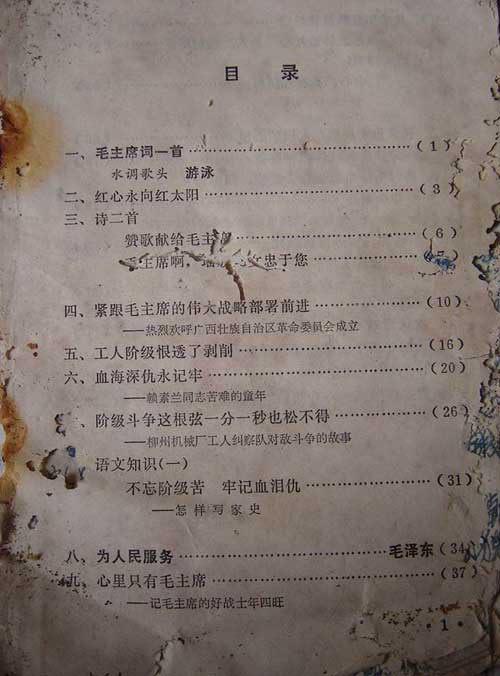 目 录
一、毛主席词一首……………………(1)
水调歌头 游泳
二、红心永向红太阳……………………(3)
三、诗二首
赞歌献给毛主席……………………(6)
毛主席啊, 忠于您……………………
四、紧跟毛主席的伟大战略部署前进……………(10)
——热烈欢呼广西壮族自治区革命委员会成立
五、工人阶级恨透了剥削……………………(16)
六、血海深仇永记牢……………………(20)
——赖素兰同志苦难的童年
、阶级斗争这根弦一分一秒也松不得…………(26)
——柳州机械厂工人纠察队对敌斗争的故事
语文知识(一)
不忘阶级苦 牢记血泪仇……………(31)
——怎样写家史
八、为人民服务……………………毛泽东(34)
九、心里只有毛主席……………………(37)
——记毛主席的好战士年四旺
·1·